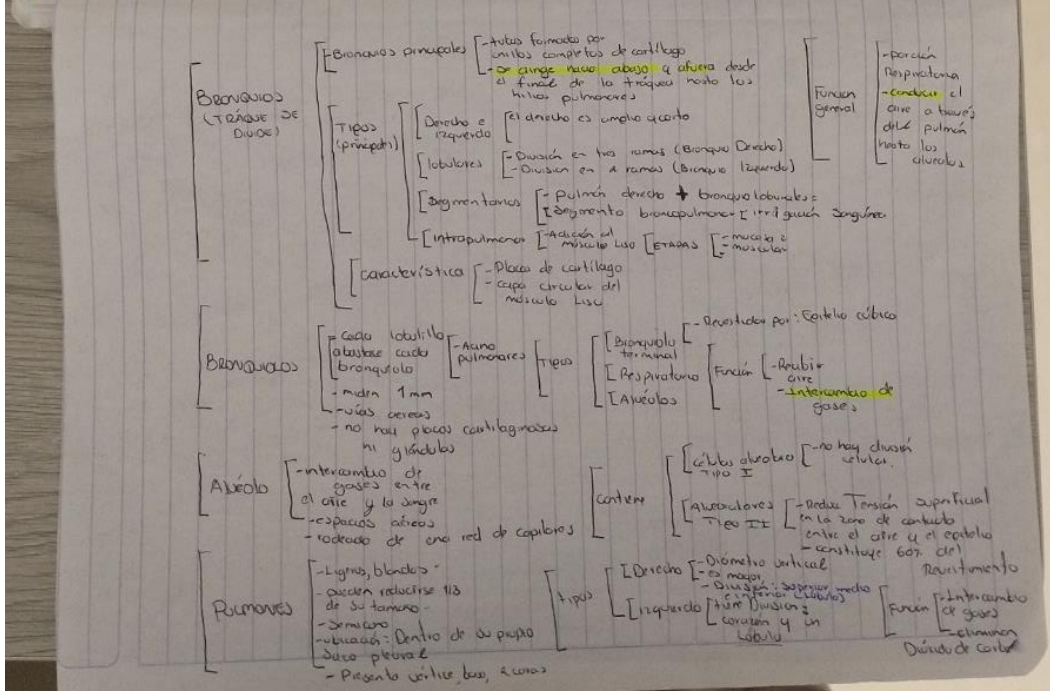 BRONQUIOS
(TRÁQUE SE
DIVIDE)
- Bronquios principales
- tubos formados por
anillos completos de cartílago
- se dirige hacia abajo y afuera desde
el final de la tráquea hasta los
hilios pulmonares
Tipos
(principales)
Derecho e
izquierdo
el derecho es amplio y corto
lobulares
- División en tres ramas (Bronquio Derecho)
- Division en 2 ramas (Bronquio Izquierdo)
Segmentarios
- Pulmón derecho + bronquio lobulares =
Segmento broncopulmonar
irrigación sanguínea
Intrapulmonar
- Adición al
músculo Liso
ETAPAS
- mucosa
- muscular
Característica
- Placas de cartílago
- capa circular del
músculo Liso
Funcion
general
- porción
Respiratoria
- conducir el
aire a través
del pulmón
hasta los
alveolos
BRONQUIOLOS
- Cada lobulillo
abastece cada
bronquiolo
- miden 1mm
- vías aereas
- no hay placas cartilaginosas
ni glándulas
- Acino
pulmonares
Tipos
Bronquiolo
terminal
Respiratorio
Alvéolos
- Revestidos por: Epitelio cúbico
Función
- Recibir
aire
- Intercambio de
gases
Alvéolo
- intercambio de
gases entre
el aire y la sangre
- espacios aéreos
- rodeado de una red de capilares
contiene
células alveolares
Tipo I
- no hay división
celular.
Alveolares
Tipo II
- Reduce Tensión superficial
en la zona de contacto
entre el aire y el epitelio
- constituye 60% del
Revestimiento
PULMONES
- Ligeros, blandos -
- pueden reducirse 1/3
de su tamaño -
- Semicono
- ubicación: Dentro de su propio
saco pleural
- Presenta vértice, base, 2 caras
tipos
Derecho
- Diámetro vertical
- es mayor
- División: superior, medio
e inferior (Lóbulos)
Izquierdo
División:
corazón y un
Lóbulo
Función
- Intercambio
de gases
- eliminan
Dióxido de carbo